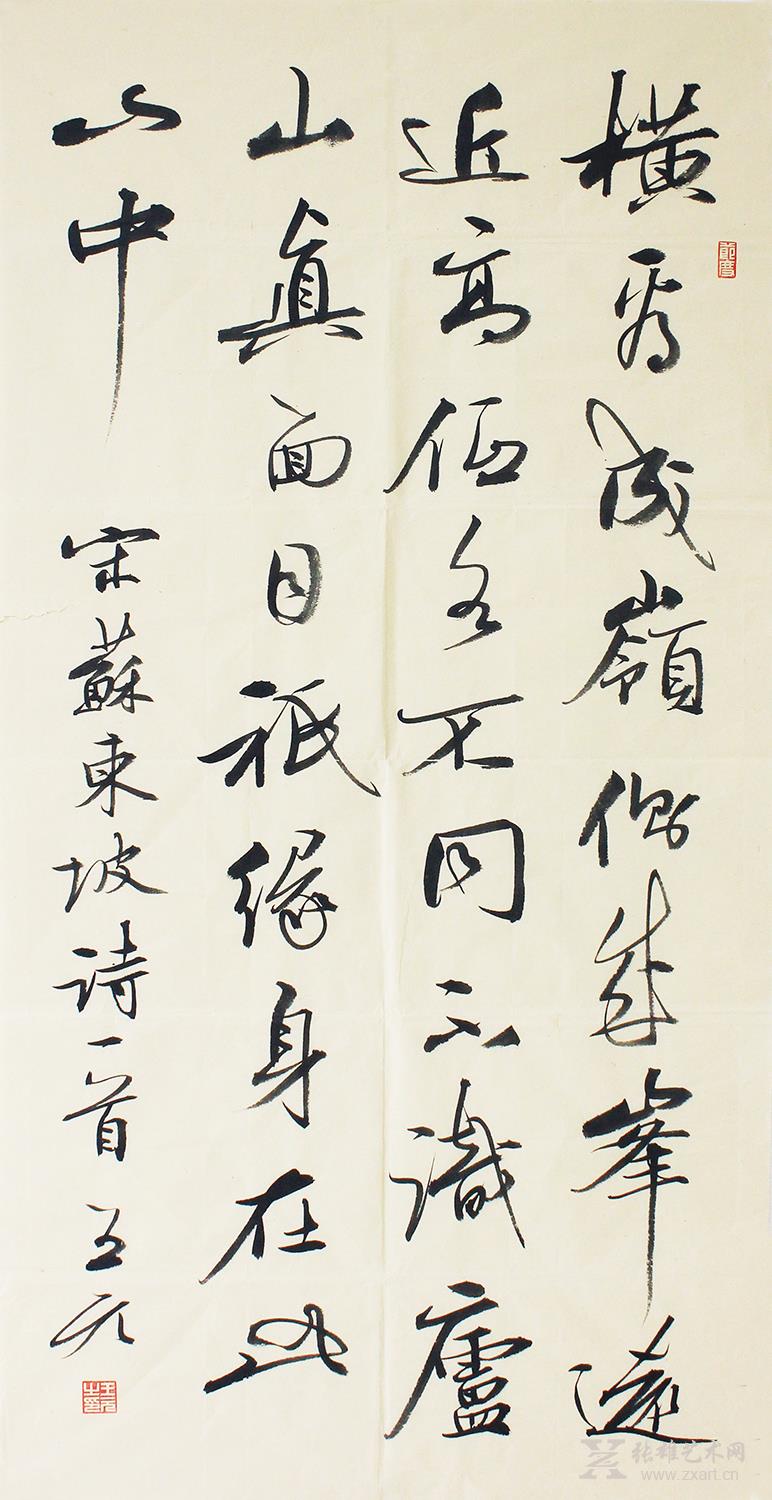 橫看成嶺側成峯遠
近高低各不同不識廬
山真面目祇緣身在此
山中
宋蘇東坡詩一首 王元
王元之印
张雄艺术网
www.zxart.cn